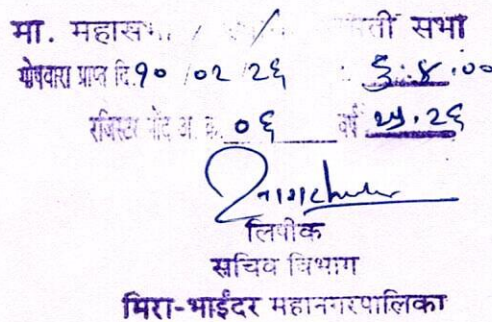 मा. महासभा / / समिती सभा
गोषवारा प्राप्त दि. १० / ०२ / २६ : ६:४.००
रजिस्टर नोंद अ. क्र. ०६ वर्ष २५.२६
लिपीक
सचिव विभाग
मिरा-भाईंदर महानगरपालिका